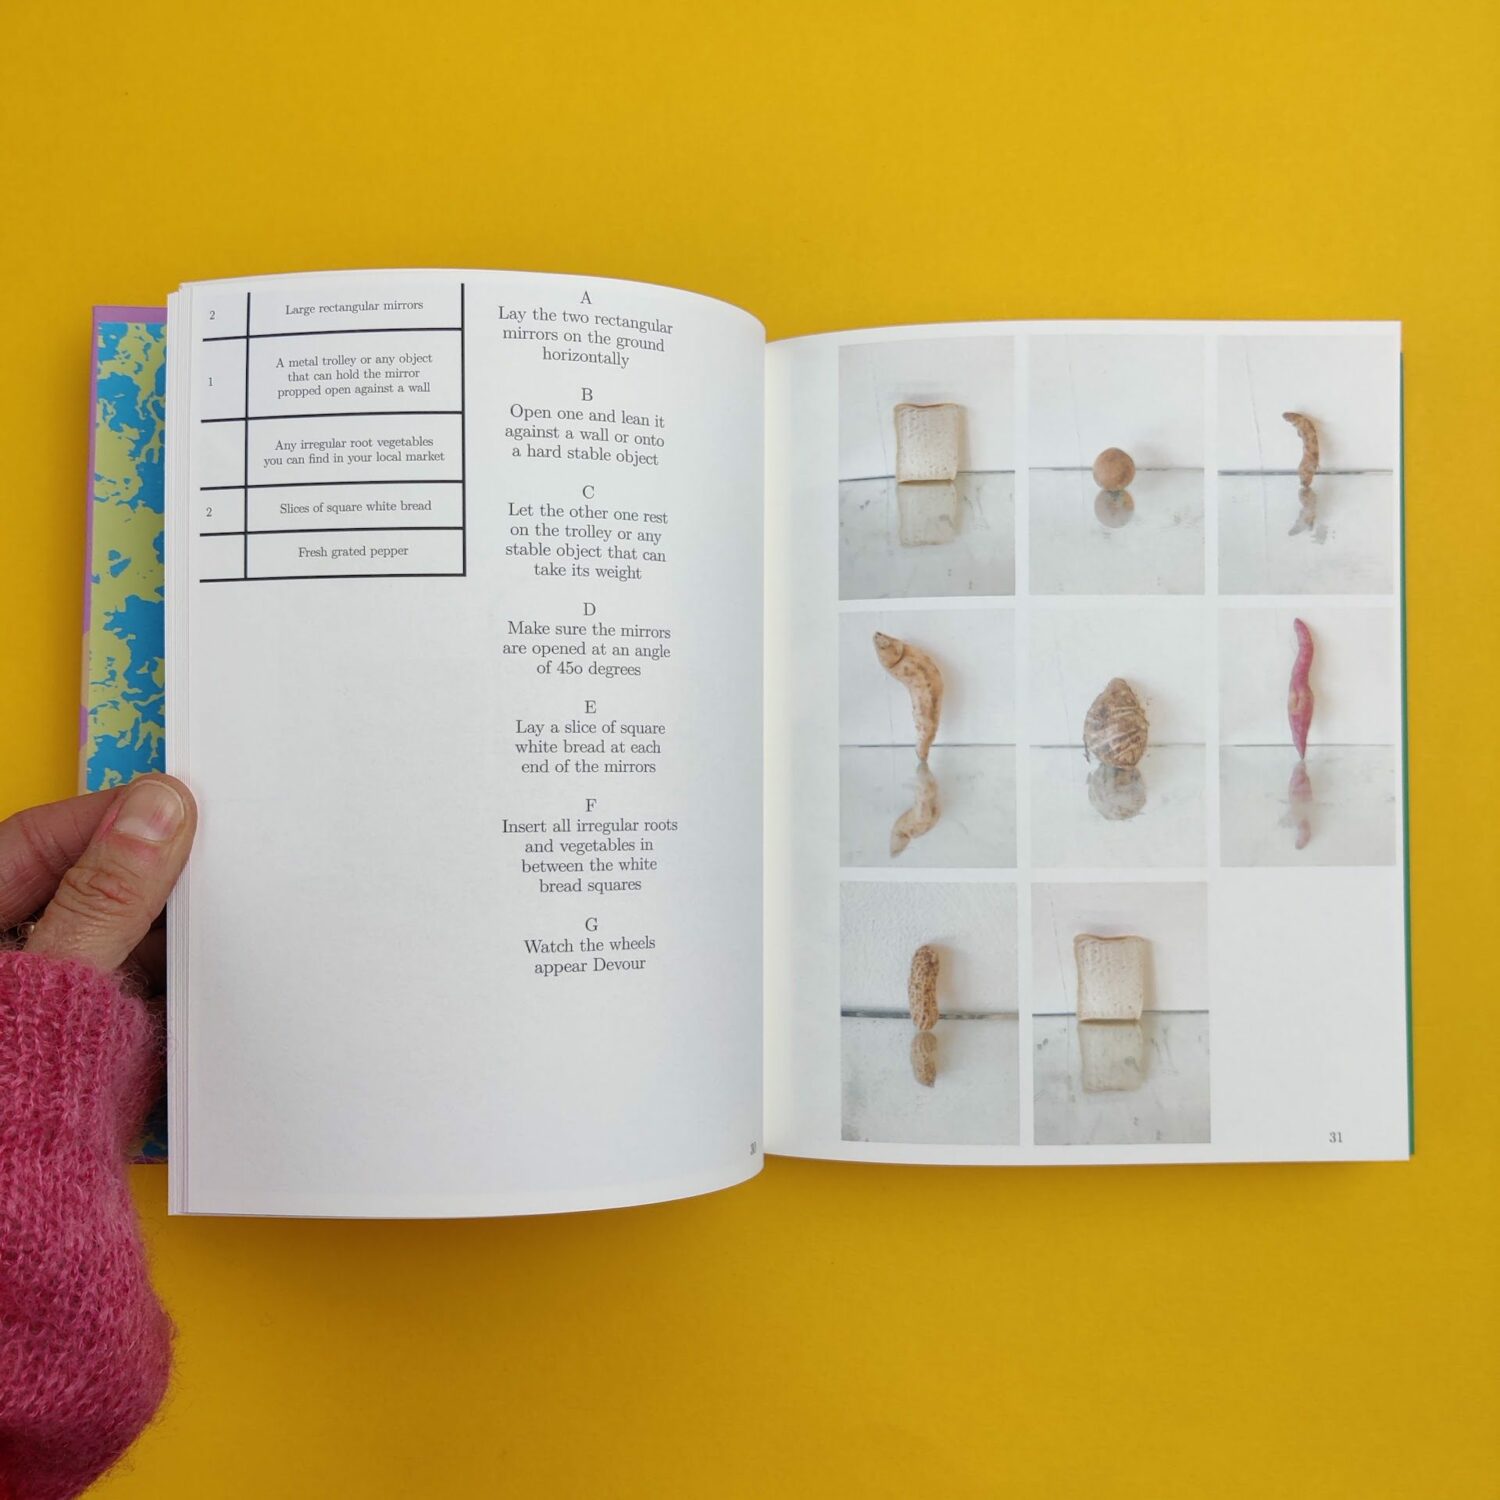 2
Large rectangular mirrors
1
A metal trolley or any object
that can hold the mirror
propped open against a wall
Any irregular root vegetables
you can find in your local market
2
Slices of square white bread
Fresh grated pepper
A
Lay the two rectangular
mirrors on the ground
horizontally
B
Open one and lean it
against a wall or onto
a hard stable object
C
Let the other one rest
on the trolley or any
stable object that can
take its weight
D
Make sure the mirrors
are opened at an angle
of 45o degrees
E
Lay a slice of square
white bread at each
end of the mirrors
F
Insert all irregular roots
and vegetables in
between the white
bread squares
G
Watch the wheels
appear Devour
30
31